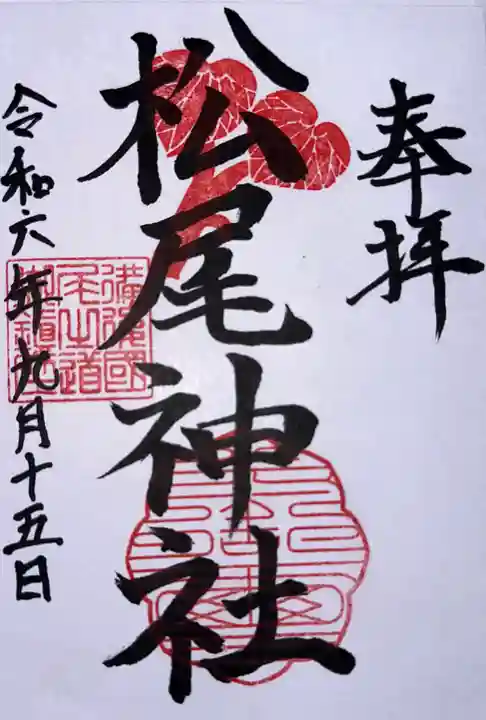 奉拝
松尾神社
備後國
尾之道
令和六年九月十五日